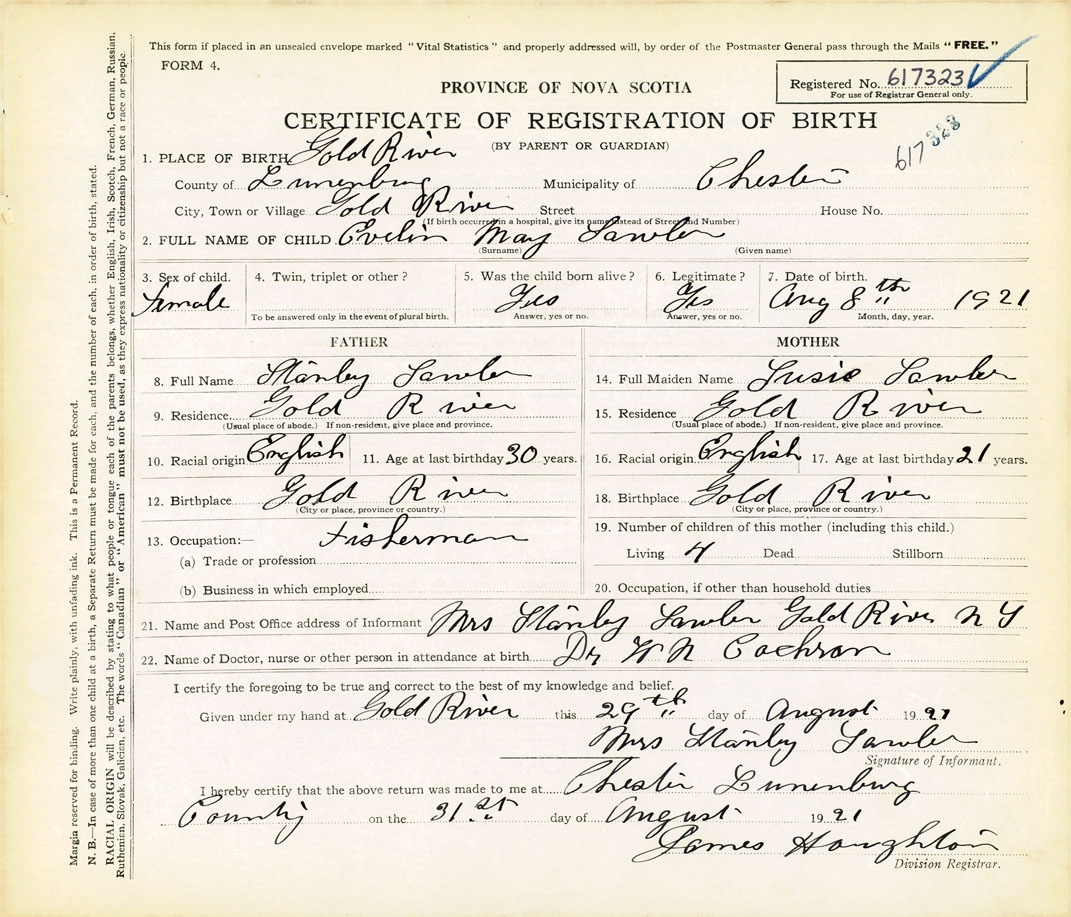 This form if placed in an unsealed envelope marked "Vital Statistics" and properly addressed will, by order of the Postmaster General pass through the Mails "FREE."
FORM 4.
Registered No. 617323
For use of Registrar General only.
PROVINCE OF NOVA SCOTIA
CERTIFICATE OF REGISTRATION OF BIRTH
617 323
(BY PARENT OR GUARDIAN)
1. PLACE OF BIRTH Gold River
County of Lunenburg Municipality of Chester
City, Town or Village Gold River Street House No.
(If birth occurred in a hospital, give its name instead of Street and Number)
2. FULL NAME OF CHILD Evelin May Lawler
(Surname) (Given name)
3. Sex of child. 4. Twin, triplet or other? 5. Was the child born alive? 6. Legitimate? 7. Date of birth.
Female Yes Yes Aug 8th 1921
To be answered only in the event of plural birth. Answer, yes or no. Answer, yes or no. Month, day, year.
FATHER MOTHER
8. Full Name Stanley Lawler 14. Full Maiden Name Susie Lawler
9. Residence Gold River 15. Residence Gold River
(Usual place of abode.) If non-resident, give place and province. (Usual place of abode.) If non-resident, give place and province.
10. Racial origin English 11. Age at last birthday 30 years. 16. Racial origin English 17. Age at last birthday 21 years.
12. Birthplace Gold River 18. Birthplace Gold River
(City or place, province or country.) (City or place, province or country.)
13. Occupation:— Fisherman 19. Number of children of this mother (including this child.)
(a) Trade or profession Living 4 Dead Stillborn
(b) Business in which employed 20. Occupation, if other than household duties
21. Name and Post Office address of Informant Mrs Stanley Lawler Gold River N S
22. Name of Doctor, nurse or other person in attendance at birth Dr W N Cochran
I certify the foregoing to be true and correct to the best of my knowledge and belief.
Given under my hand at Gold River this 29th day of August 1921
Mrs Stanley Lawler
Signature of Informant.
I hereby certify that the above return was made to me at Chester Lunenburg
County on the 31st day of August 1921
James Houghton
Division Registrar.
Margin reserved for binding. Write plainly, with unfading ink. This is a Permanent Record.
N. B.—In case of more than one child at a birth, a Separate Return must be made for each, and the number of each, in order of birth, stated.
RACIAL ORIGIN will be described by stating to what people or tongue each of the parents belongs, whether English, Irish, Scotch, French, German, Russian,
Ruthenian, Slovak, Galician, etc. The words "Canadian" or "American" must not be used, as they express nationality or citizenship but not a race or people.